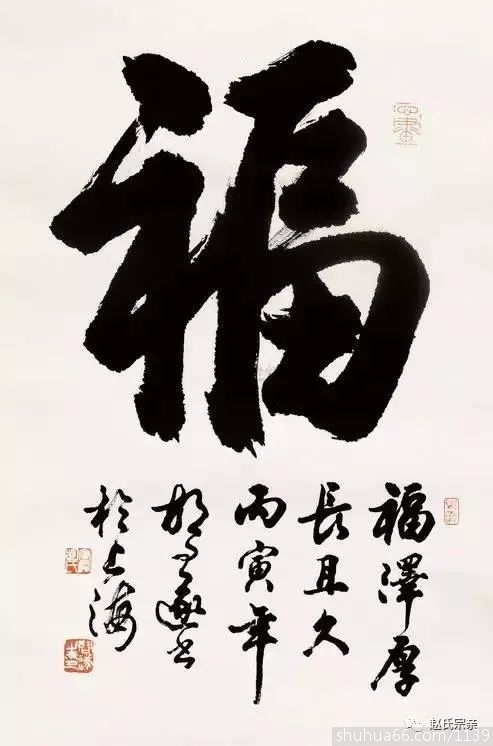 福
福澤厚
長且久
丙寅年
胡问遂书
於上海
赵氏宗亲
shuhua66.com/1139